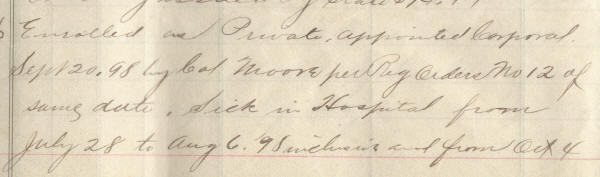 Enrolled as Private, appointed Corporal.
Sept 20, 98 by Col Moore per Reg Orders No 12 of
same date. Sick in Hospital from
July 28 to Aug 6. '98 inclusive and from Oct 4